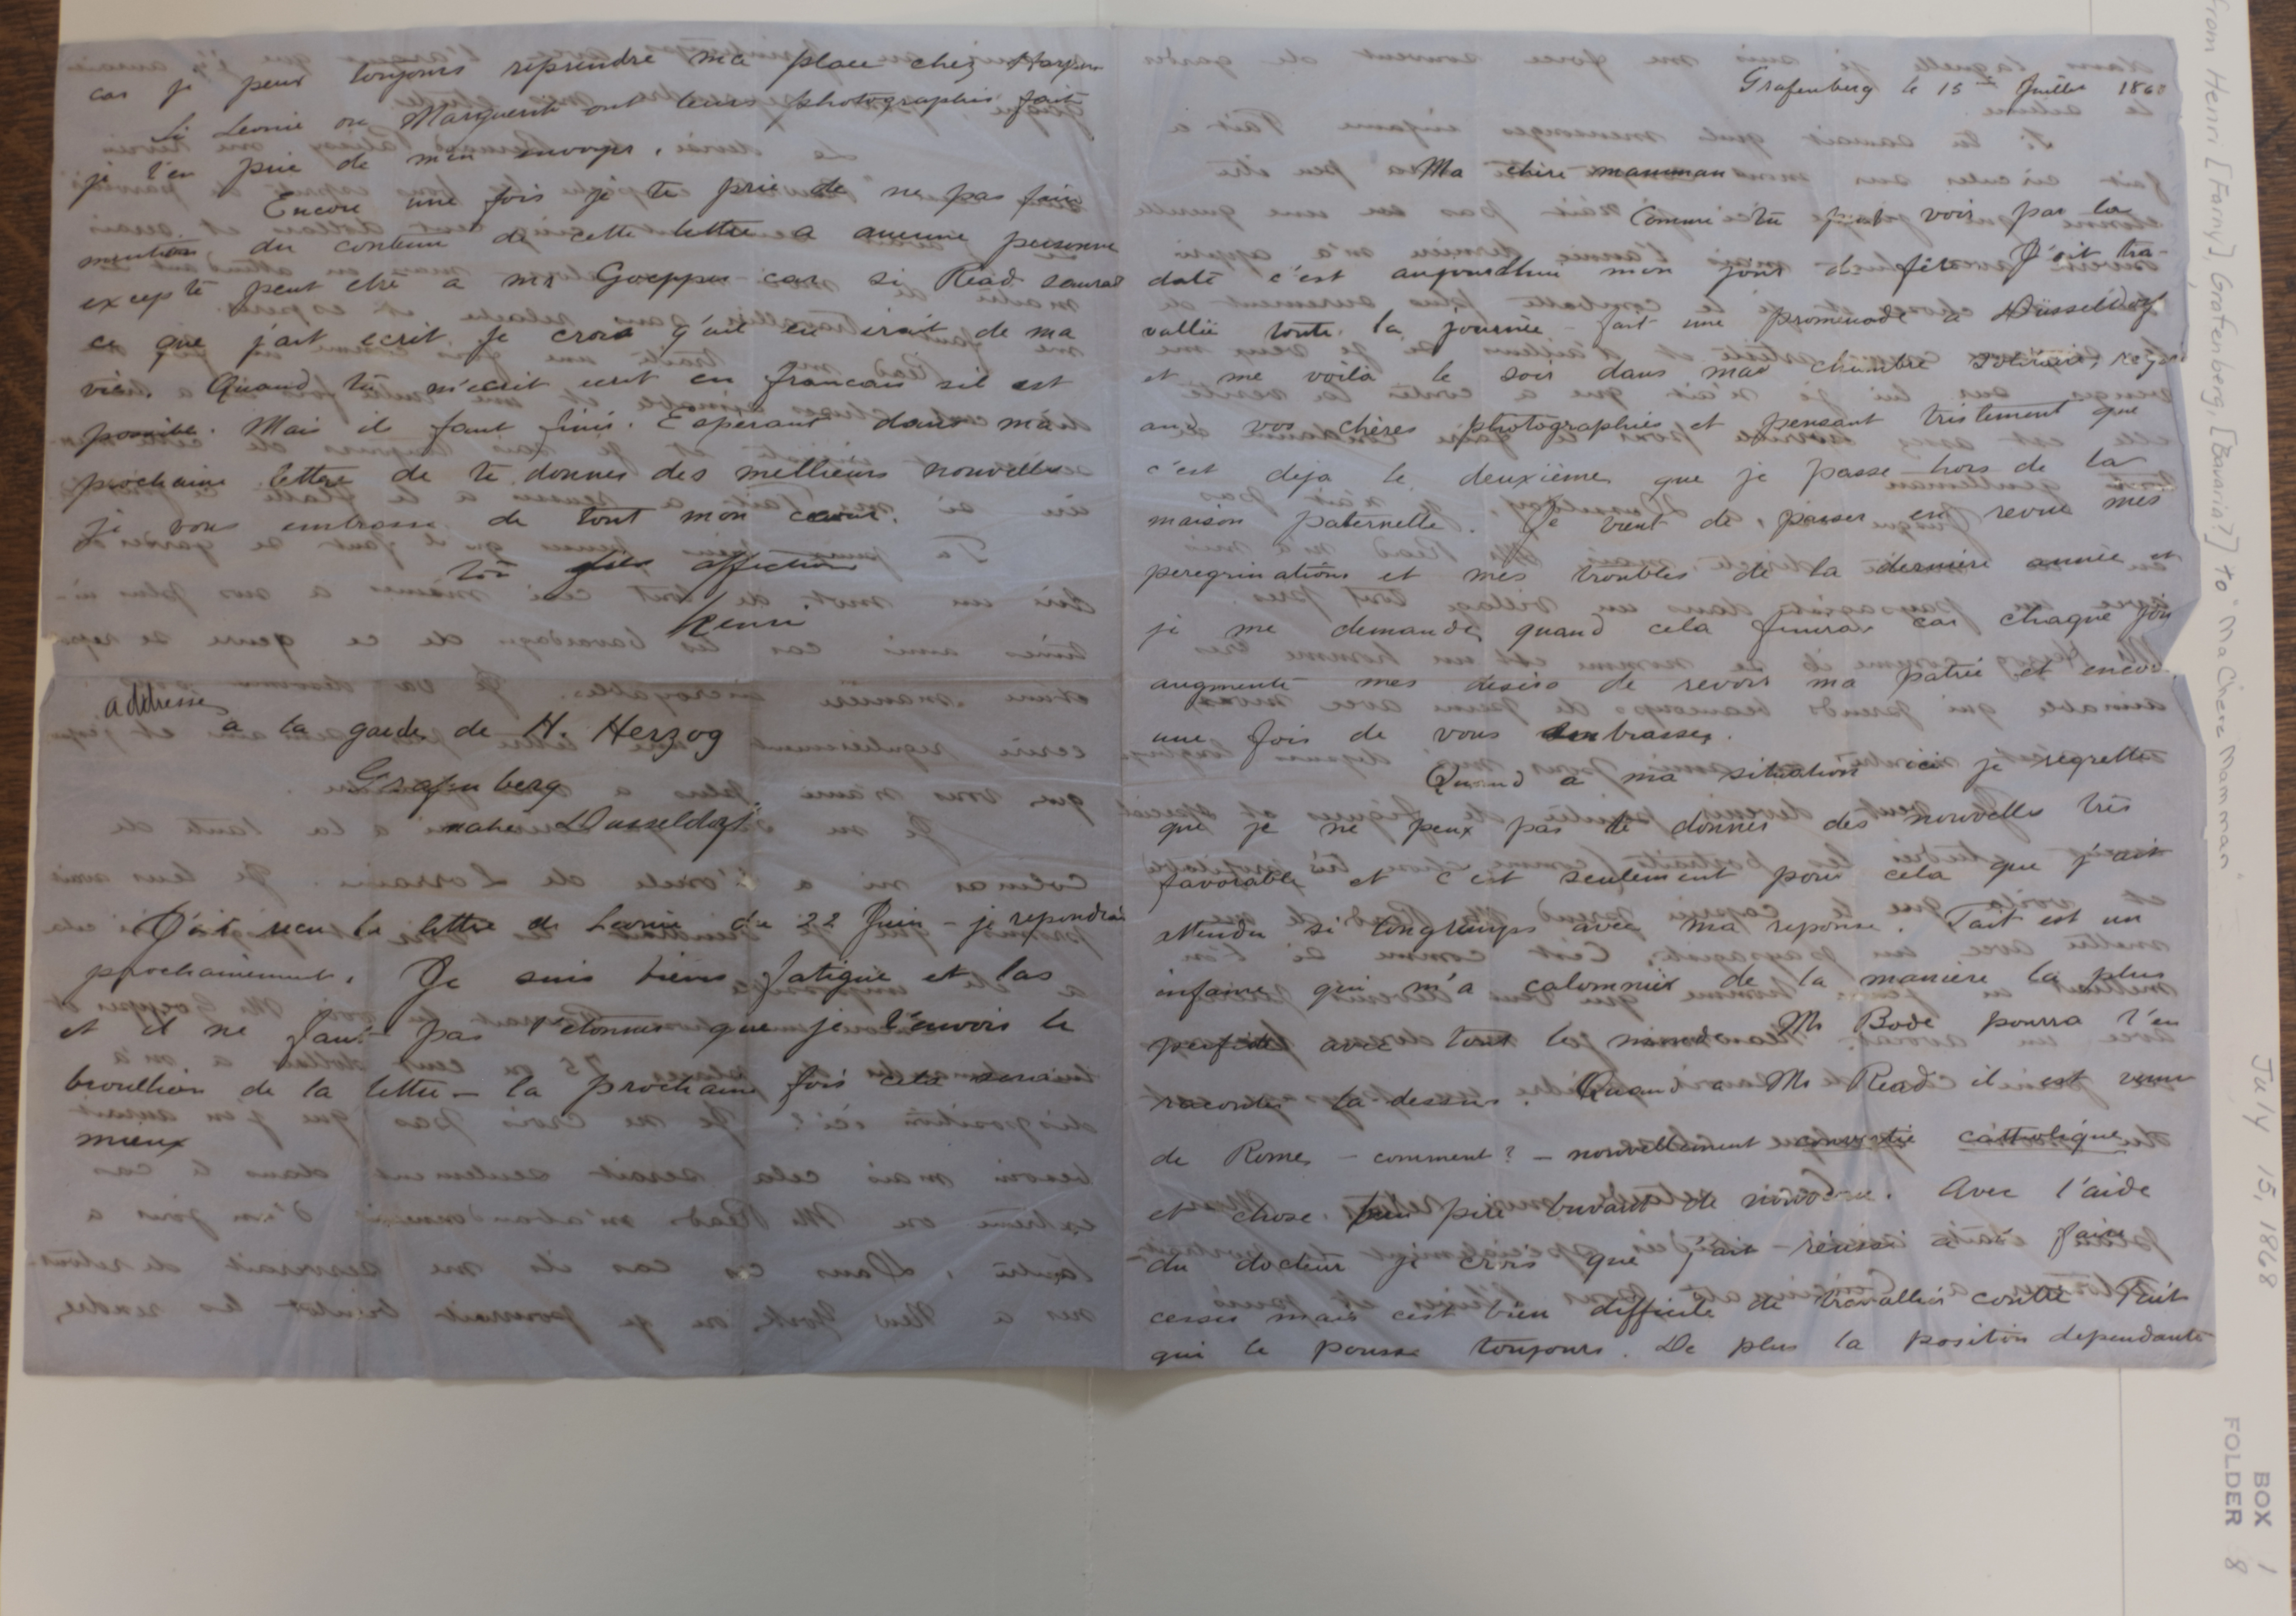 Grafenberg le 15me Juillet 186
Ma chère mamman
Comme tu peut voir par la
date c'est aujourdhui mon jour de fête J'ait tra-
vallié toute la journée – fait une promenade a Düsseldorf
et me voila le soir dans mad chambre solitaire, reg
ant vos chères photographies et pensant tristement que
c'est deja le deuxième que je passe hors de la
maison paternelle. Je vient de passer en revue mes
peregrinations et mes troubles de la derniere année et
je me demande quand cela finira car chaque jou
augmente mes desirs de revoir ma patrie et encor
une fois de vous embrasser.
Quand a ma situation ici je regrette
que je ne peux pas te donner des nouvelles très
favorable et c'est seulement pour cela que j'ait
attendu si longtemps avec ma reponse. Tait est un
infame qui m'a calomnier de la maniere la plus
perfide avec tout le monde Mr Bode pourra t'en
raconter la-dessus. Quand a Mr Read il est venu
de Rome – comment? – nouvellement convertie catholique
et chose pire buvant de nouveau. Avec l'aide
du docteur je crois que j'ait réussi a faire
cesser mais c'est bien difficile de travallier contre Tait
qui le pousse toujours. De plus la position dependante
car je peux toujours reprendre ma place chez Harper
Si Leonie ou Marguerite ont leurs photographies fait
je t'en prie de m'en envoyer.
Encore une fois je te prie de ne pas faire
mention du contenu de cette lettre a aucune personne
excepté peut etre a mr Goepper car si Read saurad
ce que j'ait ecrit je crois q'uil en irait de ma
vie. Quand tu m'ecrit ecrit en francais sil est
possible. Mais il faut finir. Esperant dans ma
prochaine lettre de te donner des mellieurs nouvelles
je vous embrasse de tout mon coeur.
ton fils affection
Henri
addresse
a la garde de H. Herzog
Grafenberg
nahe Dusseldorf
J'ait recu la lettre de Leonie du 22 Juin – je repondrai
prochainement. Je suis biens fatigue et las
et il ne faut pas t'etonner que je t'envois le
broullion de la lettre – la prochaine fois cela serait
mieux
from Henri [Farny], Grafenberg, [Bavaria?] to "Ma Chere Mamman"
July 15, 1868
BOX 1
FOLDER 8